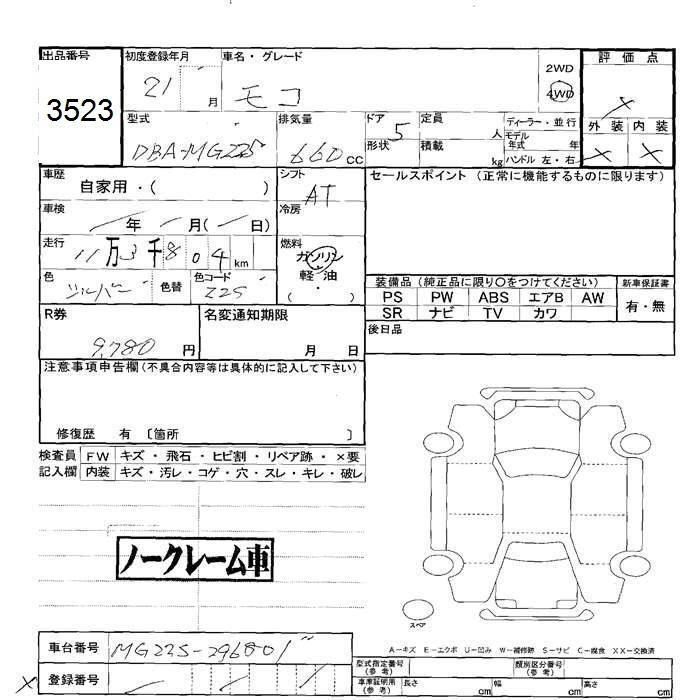 出品番号 初度登録年月 車名・グレード 2WD 評価点
3523 21 月 モコ 4WD ×
型式 排気量 ドア 定員 ディーラー・並行 外装 内装
DBA-MG22S 660 cc 5 人 モデル年式 年 × ×
形状 積載 kg ハンドル 左・右
車歴 シフト セールスポイント (正常に機能するものに限ります)
自家用・( ) AT
車検 年 月( 日) 冷房
走行 11万3千804km 燃料
ガソリン
軽油
・
( )
色 シルバー 色替 色コード Z2S
装備品 (純正品に限り○をつけてください) 新車保証書
PS PW ABS エアB AW 有・無
SR ナビ TV カワ
R券 名変通知期限 後日品
9,780 円 月 日
注意事項申告欄(不具合内容等は具体的に記入して下さい)
修復歴 有 〔箇所 〕
検査員 FW キズ・飛石・ヒビ割・リペア跡・×要
記入欄 内装 キズ・汚レ・コゲ・穴・スレ・キレ・破レ
ノークレーム車
スペア
車台番号 MG22S-296801
A-キズ E-エクボ U-凹み W-補修跡 S-サビ C-腐食 XX-交換済
登録番号
型式指定番号(参考) 類別区分番号(参考)
車庫証明用(参考) 長さ cm 幅 cm 高さ cm
×